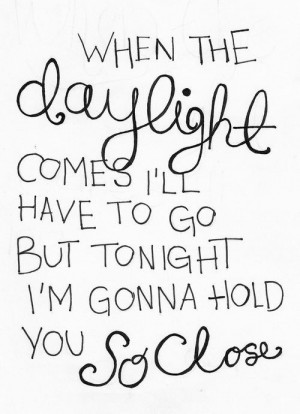 WHEN THE
daylight
COMES I'LL
HAVE TO GO
BUT TONIGHT
I'M GONNA HOLD
YOU So Close